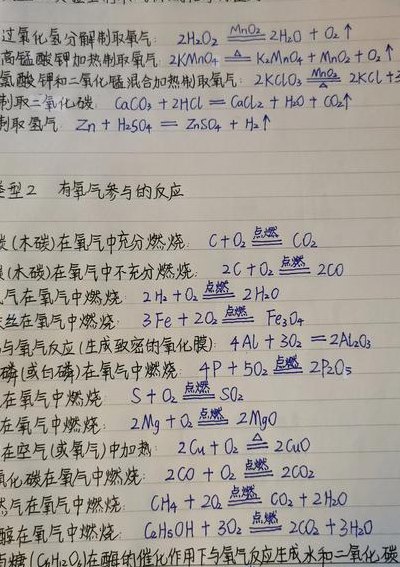 过氧化氢分解制取氧气: 2H₂O₂ =MnO₂= 2H₂O + O₂↑
高锰酸钾加热制取氧气: 2KMnO₄ =△= K₂MnO₄ + MnO₂ + O₂↑
氯酸钾和二氧化锰混合加热制取氧气: 2KClO₃ =MnO₂/△= 2KCl + 3
制取二氧化碳: CaCO₃ + 2HCl = CaCl₂ + H₂O + CO₂↑
制取氢气: Zn + H₂SO₄ = ZnSO₄ + H₂↑
类型2 有氧气参与的反应
(木碳)在氧气中充分燃烧: C + O₂ =点燃= CO₂
(木碳)在氧气中不充分燃烧: 2C + O₂ =点燃= 2CO
气在氧气中燃烧: 2H₂ + O₂ =点燃= 2H₂O
丝在氧气中燃烧: 3Fe + 2O₂ =点燃= Fe₃O₄
与氧气反应(生成致密的氧化膜): 4Al + 3O₂ = 2Al₂O₃
磷(或白磷)在氧气中燃烧: 4P + 5O₂ =点燃= 2P₂O₅
在氧气中燃烧: S + O₂ =点燃= SO₂
在氧气中燃烧: 2Mg + O₂ =点燃= 2MgO
在空气(或氧气)中加热: 2Cu + O₂ =△= 2CuO
氧化碳在氧气中燃烧: 2CO + O₂ =点燃= 2CO₂
气在氧气中燃烧: CH₄ + 2O₂ =点燃= CO₂ + 2H₂O
醇在氧气中燃烧: C₂H₅OH + 3O₂ =点燃= 2CO₂ + 3H₂O
糖(C₆H₁₂O₆)在酶的催化作用下与氧气反应生成水和二氧化碳